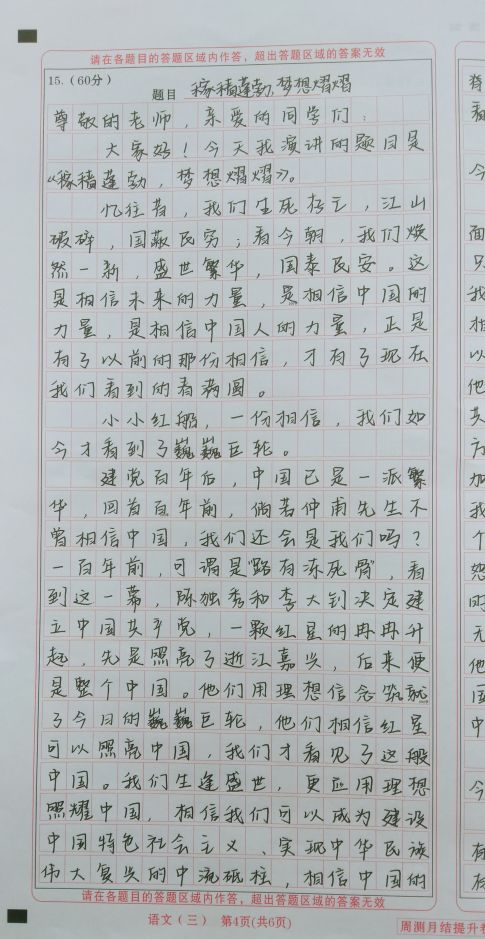 请在各题目的答题区域内作答，超出答题区域的答案无效
15.（60分）
题目 稼穑蓬勃,梦想熠熠
尊敬的老师，亲爱的同学们：
大家好！今天我演讲的题目是
《稼穑蓬勃，梦想熠熠》。
忆往昔，我们生死存亡，江山
破碎，国敝民穷；看今朝，我们焕
然一新，盛世繁华，国泰民安。这
是相信未来的力量，是相信中国的
力量，是相信中国人的力量，正是
有了以前的那份相信，才有了现在
我们看到的春满圆。
小小红船，一份相信，我们如
今才看到了巍巍巨轮。
建党百年后，中国已是一派繁
华，回首百年前，倘若仲甫先生不
曾相信中国，我们还会是我们吗？
一百年前，可谓是“路有冻死骨”，看
到这一幕，陈独秀和李大钊决定建
立中国共产党，一颗红星的冉冉升
起，先是照亮了浙江嘉兴，后来便
是整个中国。他们用理想信念筑就
了今日的巍巍巨轮，他们相信红星
可以照亮中国，我们才看见了这般
中国。我们生逢盛世，更应用理想
照耀中国，相信我们可以成为建设
中国特色社会主义、实现中华民族
伟大复兴的中流砥柱，相信中国的
请在各题目的答题区域内作答，超出答题区域的答案无效
语文（三） 第4页(共6页)
周测月结提升卷